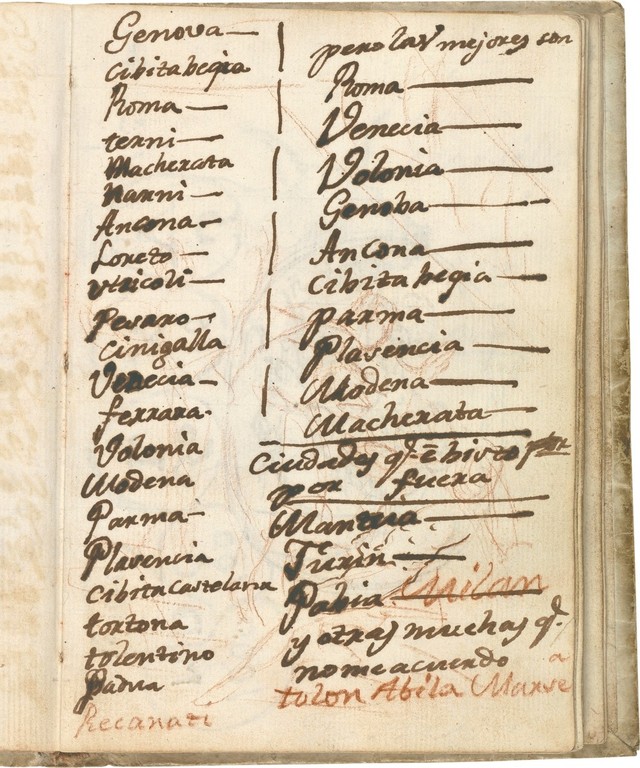 Genova
cibitabegia
Roma
terni
Macherata
Narni
Ancona
Loreto
utricoli
Pesaro
cinigalla
Venecia
ferrara
Volonia
Modena
Parma
Plasencia
cibitacastolana
tortona
tolentino
Padua
Recanati
pero las mejores son
Roma
Venecia
Volonia
Genoba
Ancona
cibita begia
parma
Plasencia
Modena
Macherata
ciudades q.e histo
por fuera
Mantua
Turin
Pabia Milan
y otras muchas q.
no me acuerdo
tolon Abila Marse
a